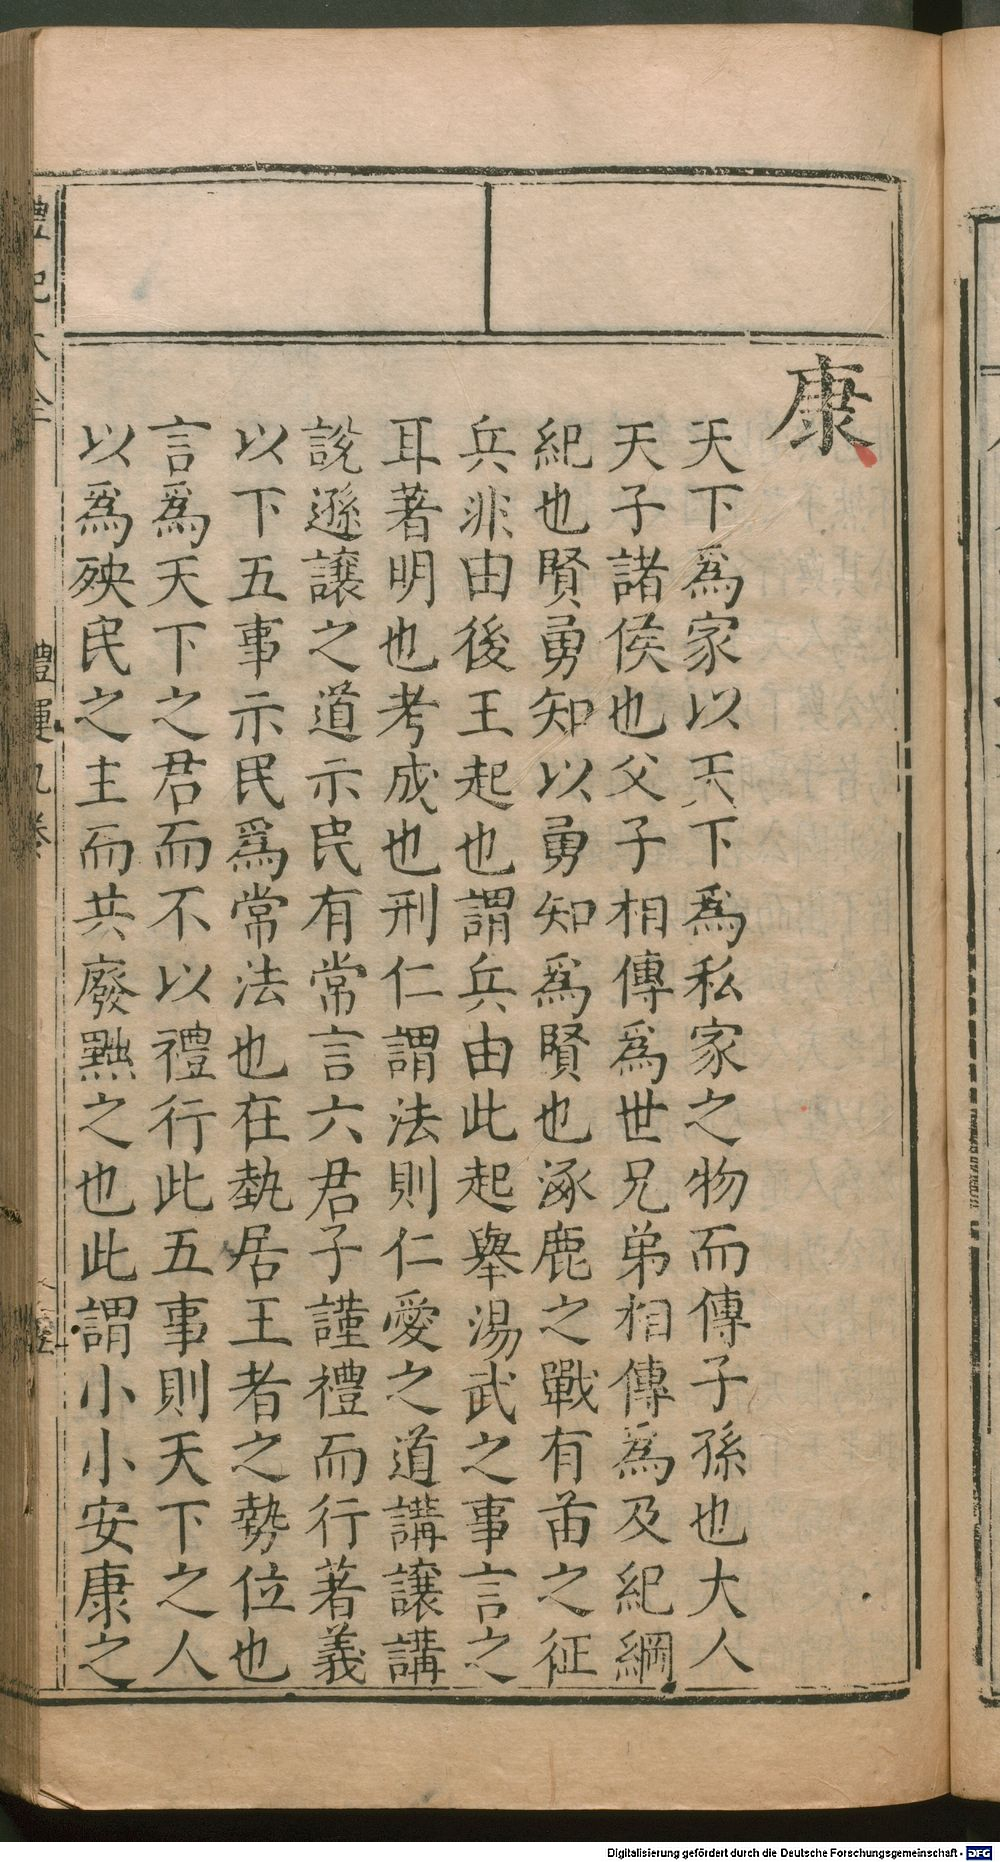 康
天下爲家以天下爲私家之物而傳子孫也大人
天子諸侯也父子相傳爲世兄弟相傳爲及紀綱
紀也賢勇知以勇知爲賢也涿鹿之戰有苗之征
兵非由後王起也謂兵由此起舉湯武之事言之
耳著明也考成也刑仁謂法則仁愛之道講讓講
說遜讓之道示民有常言六君子謹禮而行著義
以下五事示民爲常法也在埶居王者之勢位也
言爲天下之君而不以禮行此五事則天下之人
以爲殃民之主而共廢黜之也此謂小小安康之
禮記大全
禮運九卷
Digitalisierung gefördert durch die Deutsche Forschungsgemeinschaft - DFG